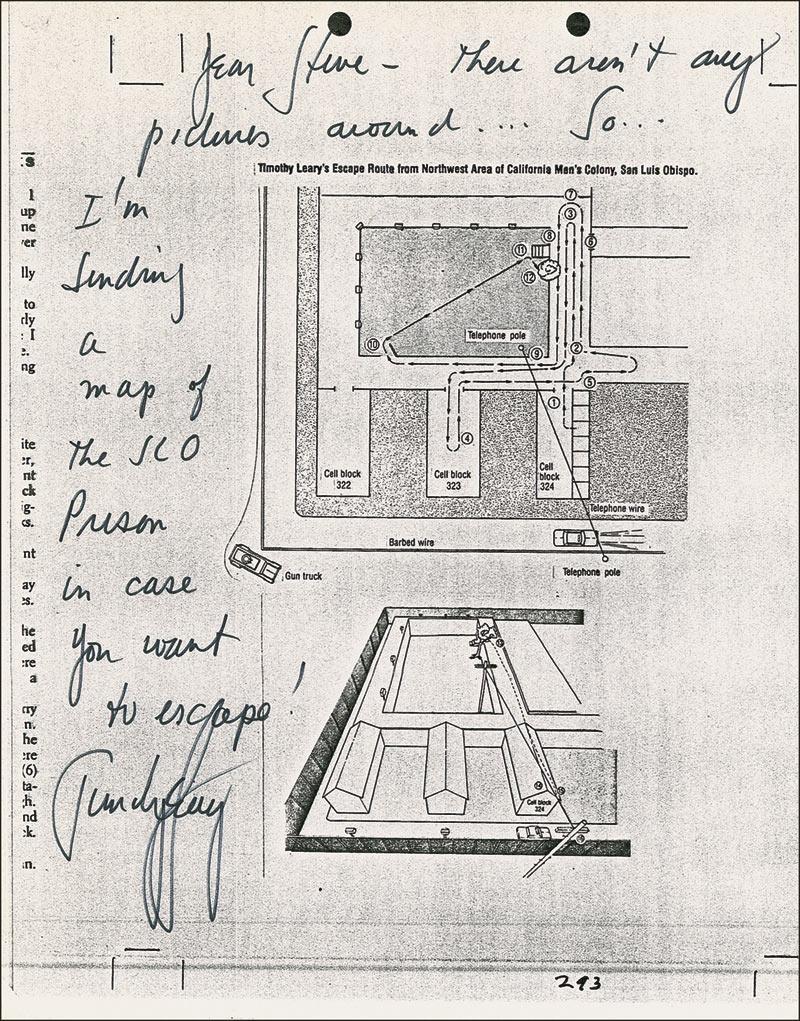 Dear Steve – There aren't any
pictures around.... So...
Timothy Leary's Escape Route from Northwest Area of California Men's Colony, San Luis Obispo.
I'm
Sending
a
map of
the SLO
Prison
in case
you want
to escape!
Timothy Leary
s
1
up
ne
er
lly
to
dly
I
ng
ite
er,
nt
ck
g-
cs.
nt
ay
es.
he
ed
re
a
ry
n.
he
re
(6)
ta-
h.
nd
k.
n.
7
3
8
6
11
12
Telephone pole
10
9
2
5
1
4
Cell block
322
Cell block
323
Cell
block
324
Telephone wire
Barbed wire
Gun truck
Telephone pole
Cell block
324
293